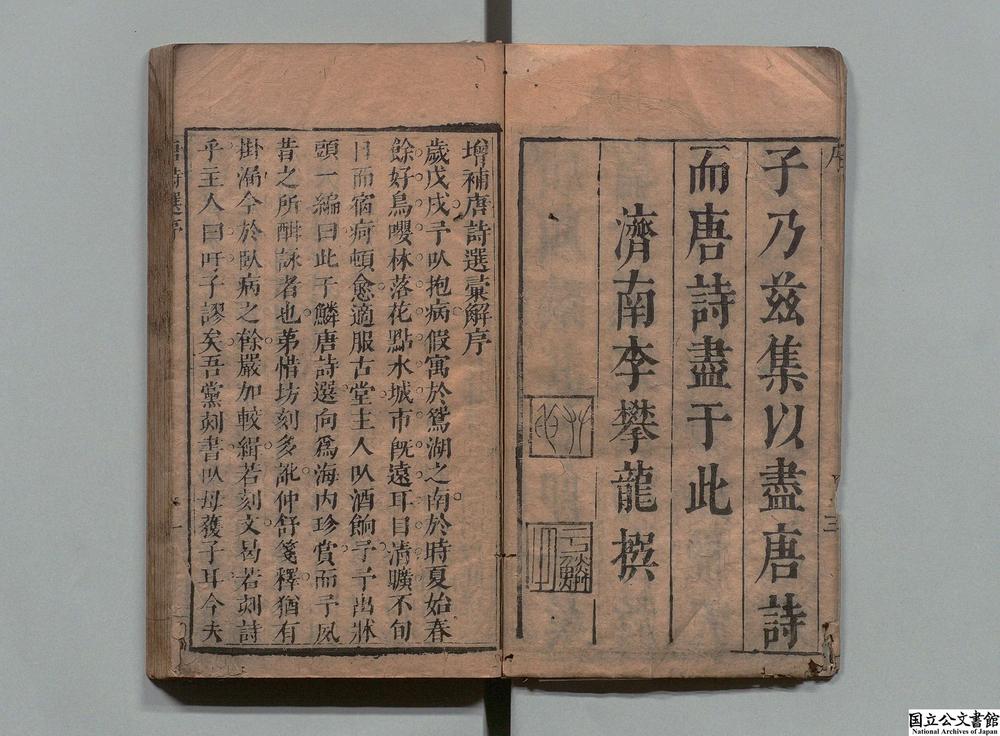 序
子乃茲集以盡唐詩
而唐詩盡于此
濟南李攀龍撰
于鱗
三
增補唐詩選彙解序
歲戊戌予以抱病假寓於鴛湖之南於時夏始春
餘好鳥嚶林落花點水城市旣遠耳目清曠不旬
日而宿痾頓愈適服古堂主人以酒餉予予出牀
頭一編曰此于鱗唐詩選向為海内珍賞而予夙
昔之所酣詠者也苐惜坊刻多訛仲舒箋釋猶有
掛漏今於臥病之餘嚴加較緝若刻文曷若刻詩
乎主人曰吁子謬矣吾黨刻書以毋獲于耳今夫
唐詩選序
一
国立公文書館
National Archives of Japan